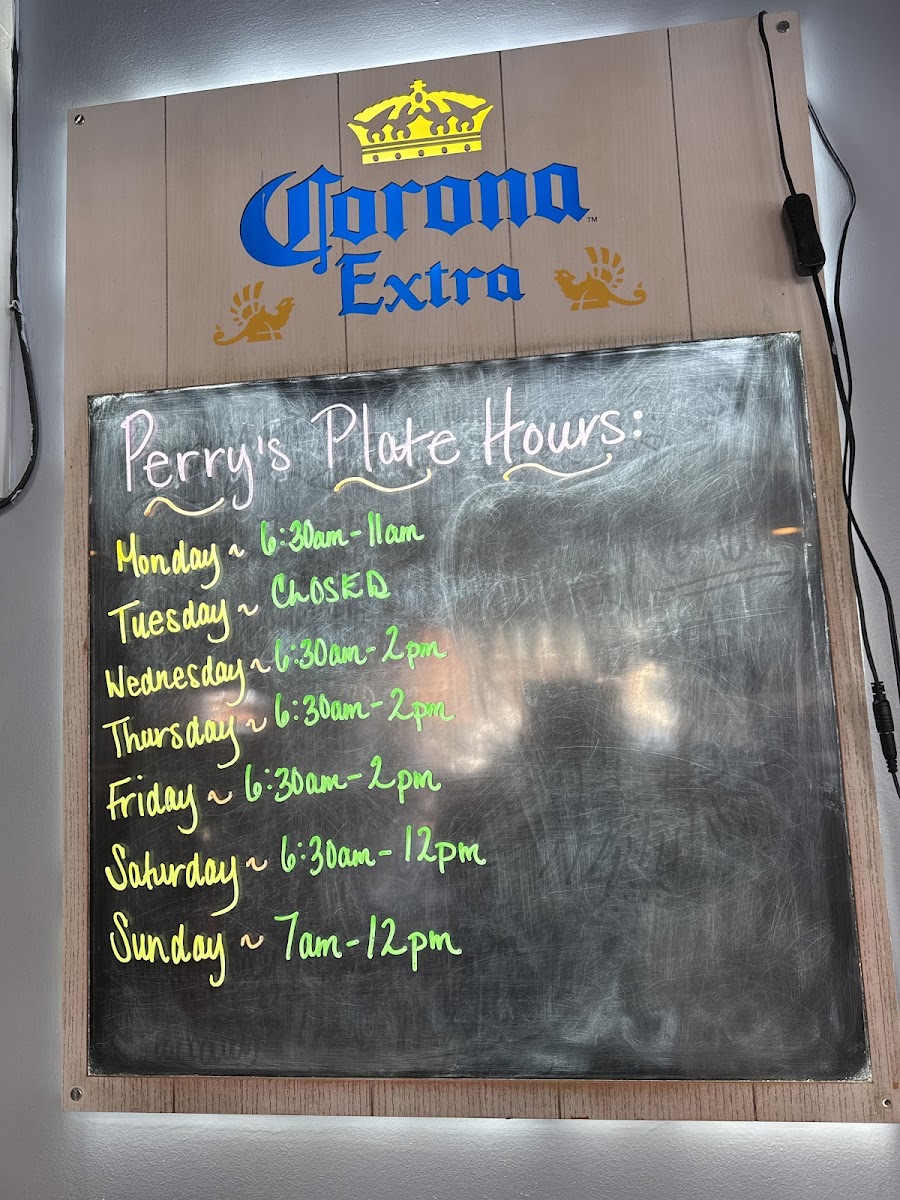 Corona
Extra
™
Perry's Plate Hours:
Monday ~ 6:30am-11am
Tuesday ~ CLOSED
Wednesday ~ 6:30am-2pm
Thursday ~ 6:30am-2pm
Friday ~ 6:30am-2pm
Saturday ~ 6:30am-12pm
Sunday ~ 7am-12pm